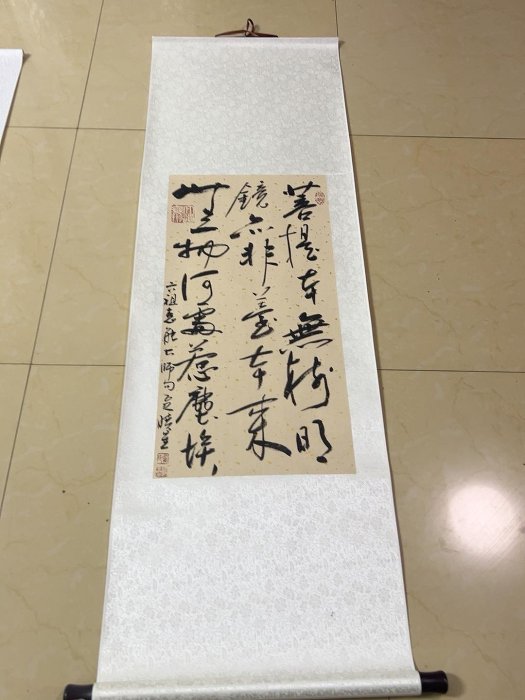 菩提本無樹明
鏡亦非臺本來
無一物何處惹塵埃
六祖惠能大师句